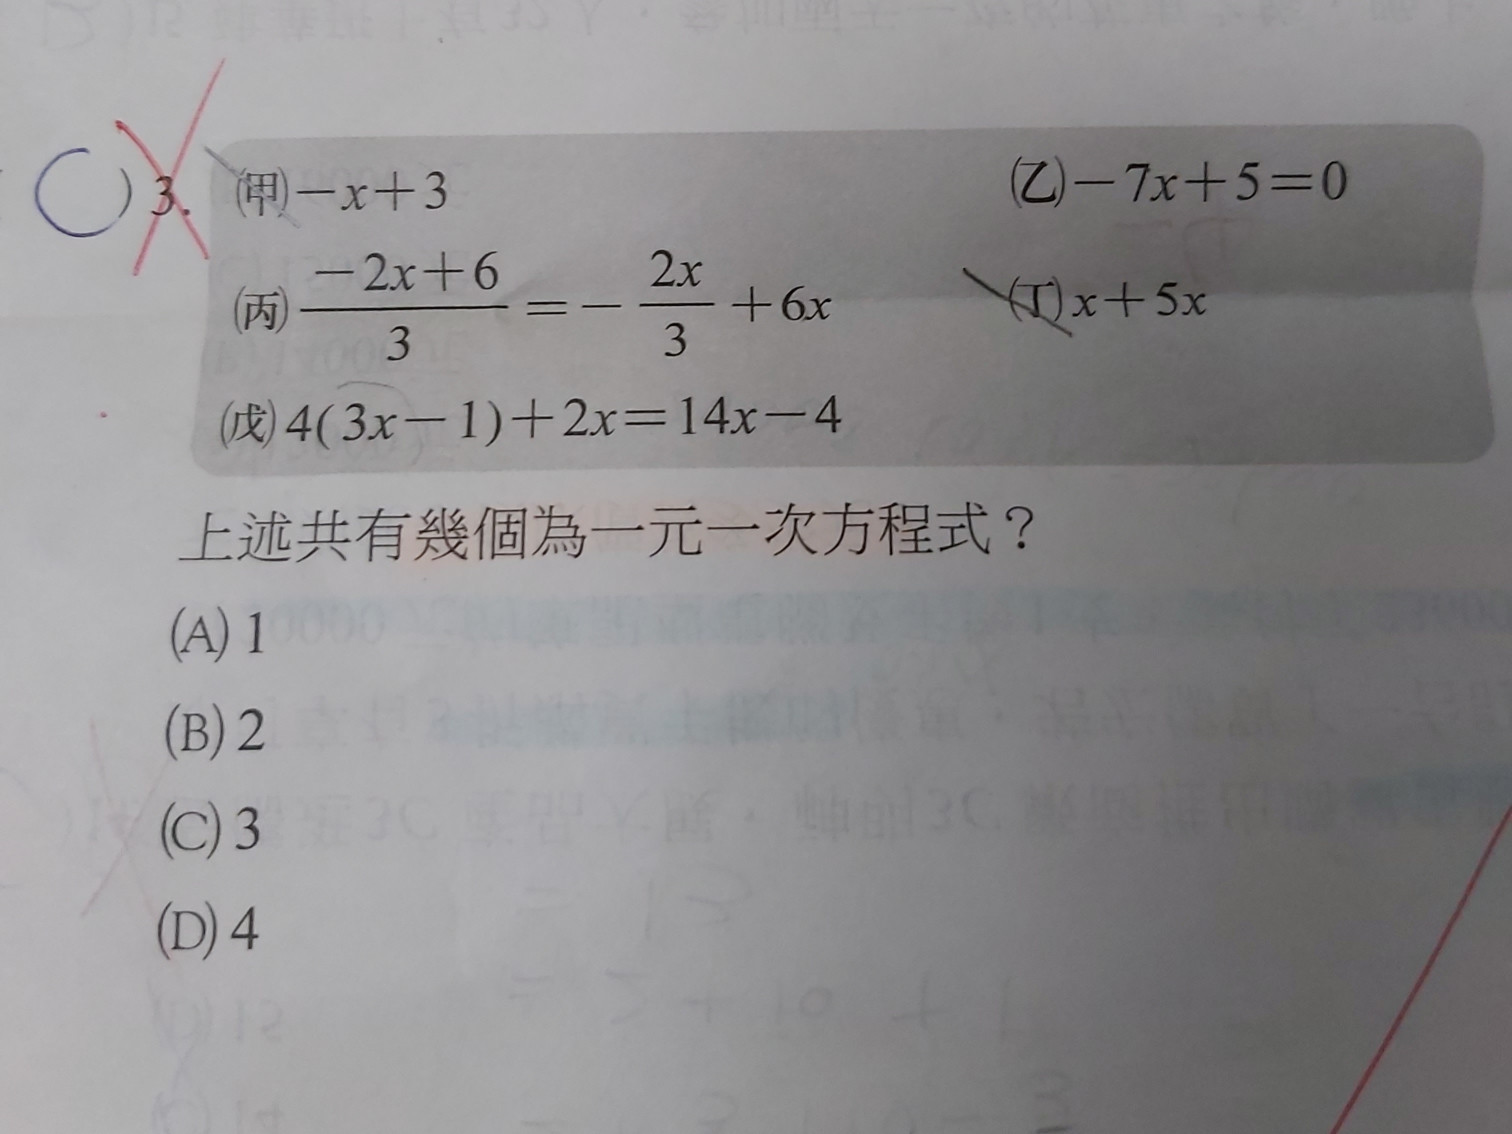 ( C ) 3. (甲)－x＋3 (乙)－7x＋5＝0
(丙) \frac{－2x＋6}{3}＝－\frac{2x}{3}＋6x (丁) x＋5x
(戊) 4( 3x－1)＋2x＝14x－4
上述共有幾個為一元一次方程式？
(A) 1
(B) 2
(C) 3
(D) 4